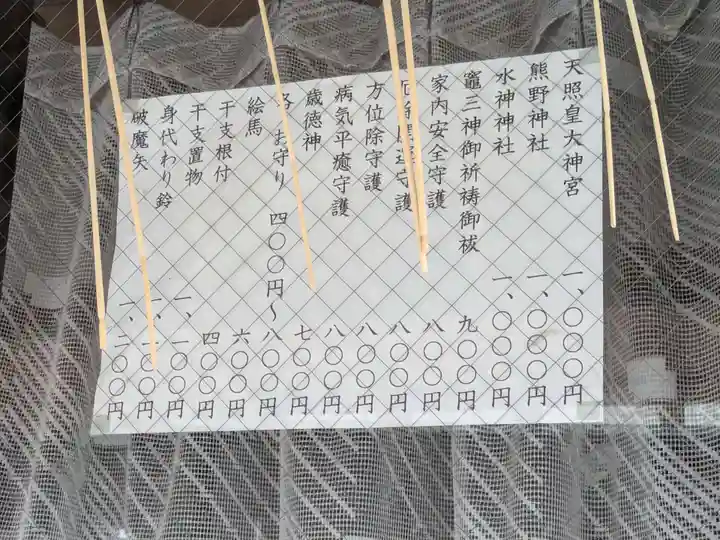 天照皇大神宮 一、〇〇〇円
熊野神社 一、〇〇〇円
水神神社 一、〇〇〇円
竈三神御祈祷御祓 九〇〇円
家内安全守護 八〇〇円
厄除開運守護 八〇〇円
方位除守護 八〇〇円
病気平癒守護 八〇〇円
歳徳神 七〇〇円
各 お守り 四〇〇円～八〇〇円
絵馬 六〇〇円
干支根付 四〇〇円
干支置物 一、一〇〇円
身代わり鈴 一、一〇〇円
破魔矢 一、二〇〇円